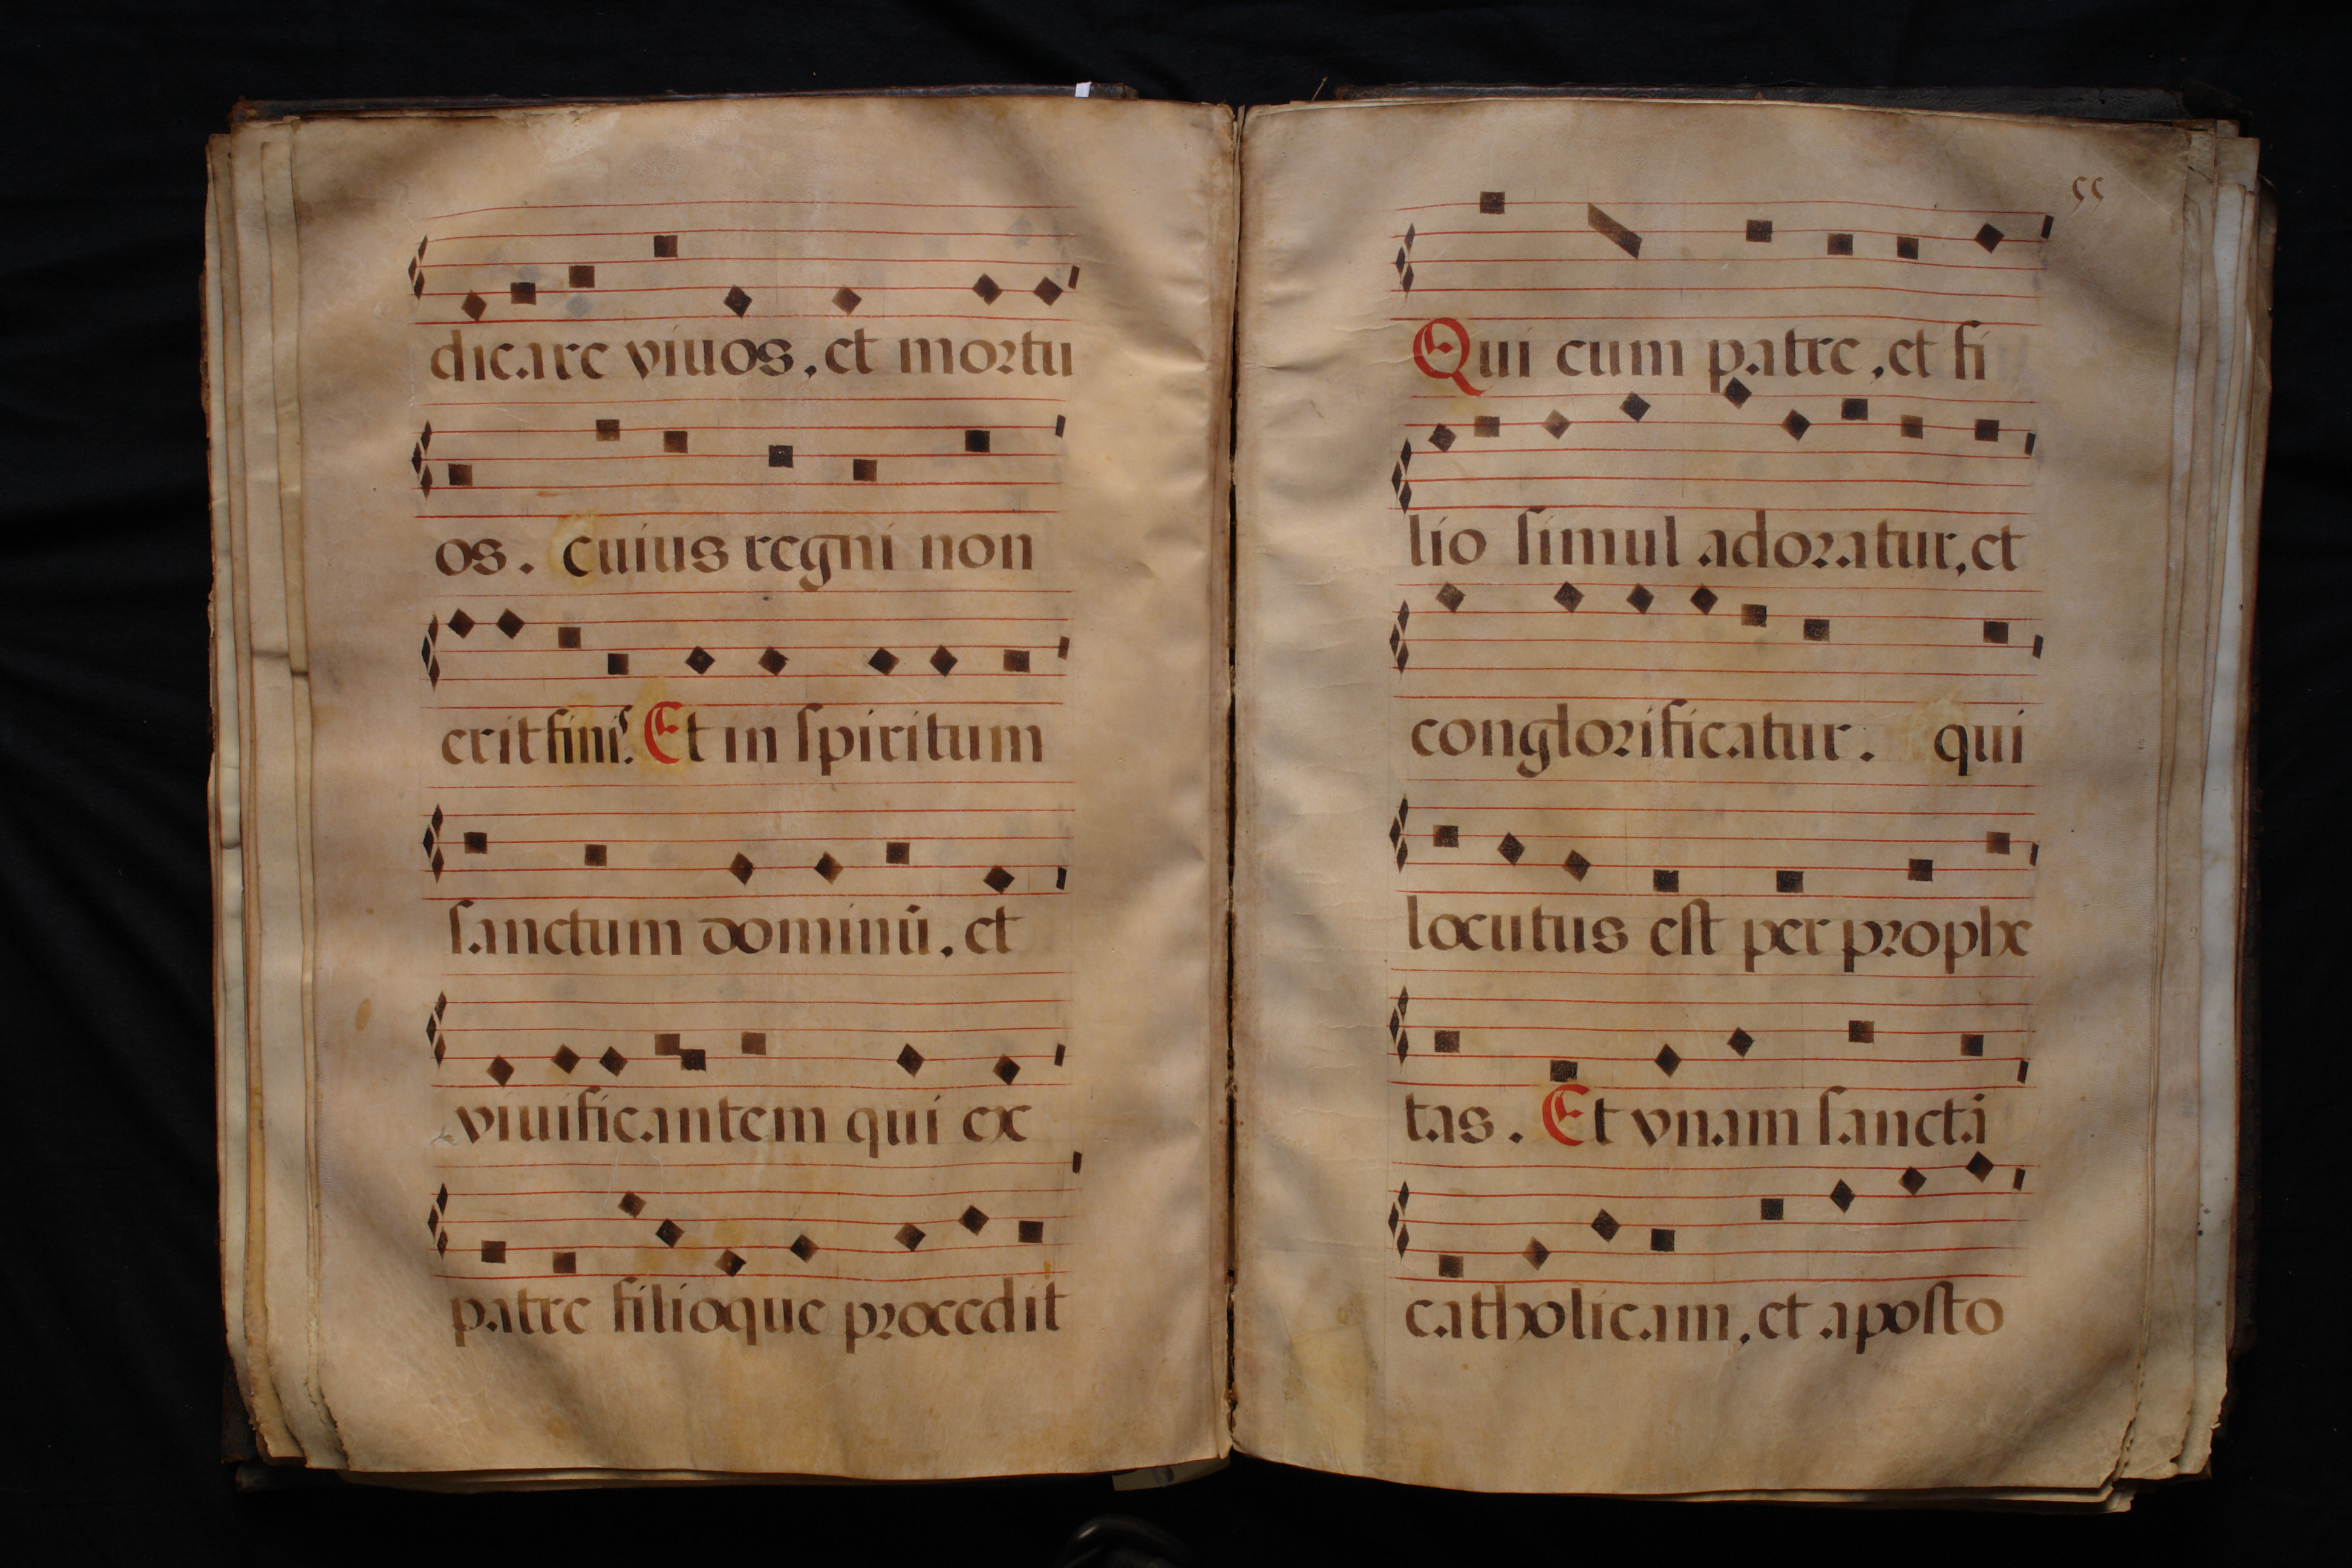 dicare viuos, et mortu
os. cuius regni non
erit finis. Et in ſpiritum
ſanctum dominū, et
viuificantem qui ex
patre filioque procedit
55
Qui cum patre, et fi
lio ſimul adoratur, et
conglorificatur. qui
locutus eſt per prophe
tas. Et vnam ſanctā
catholicam, et apoſto